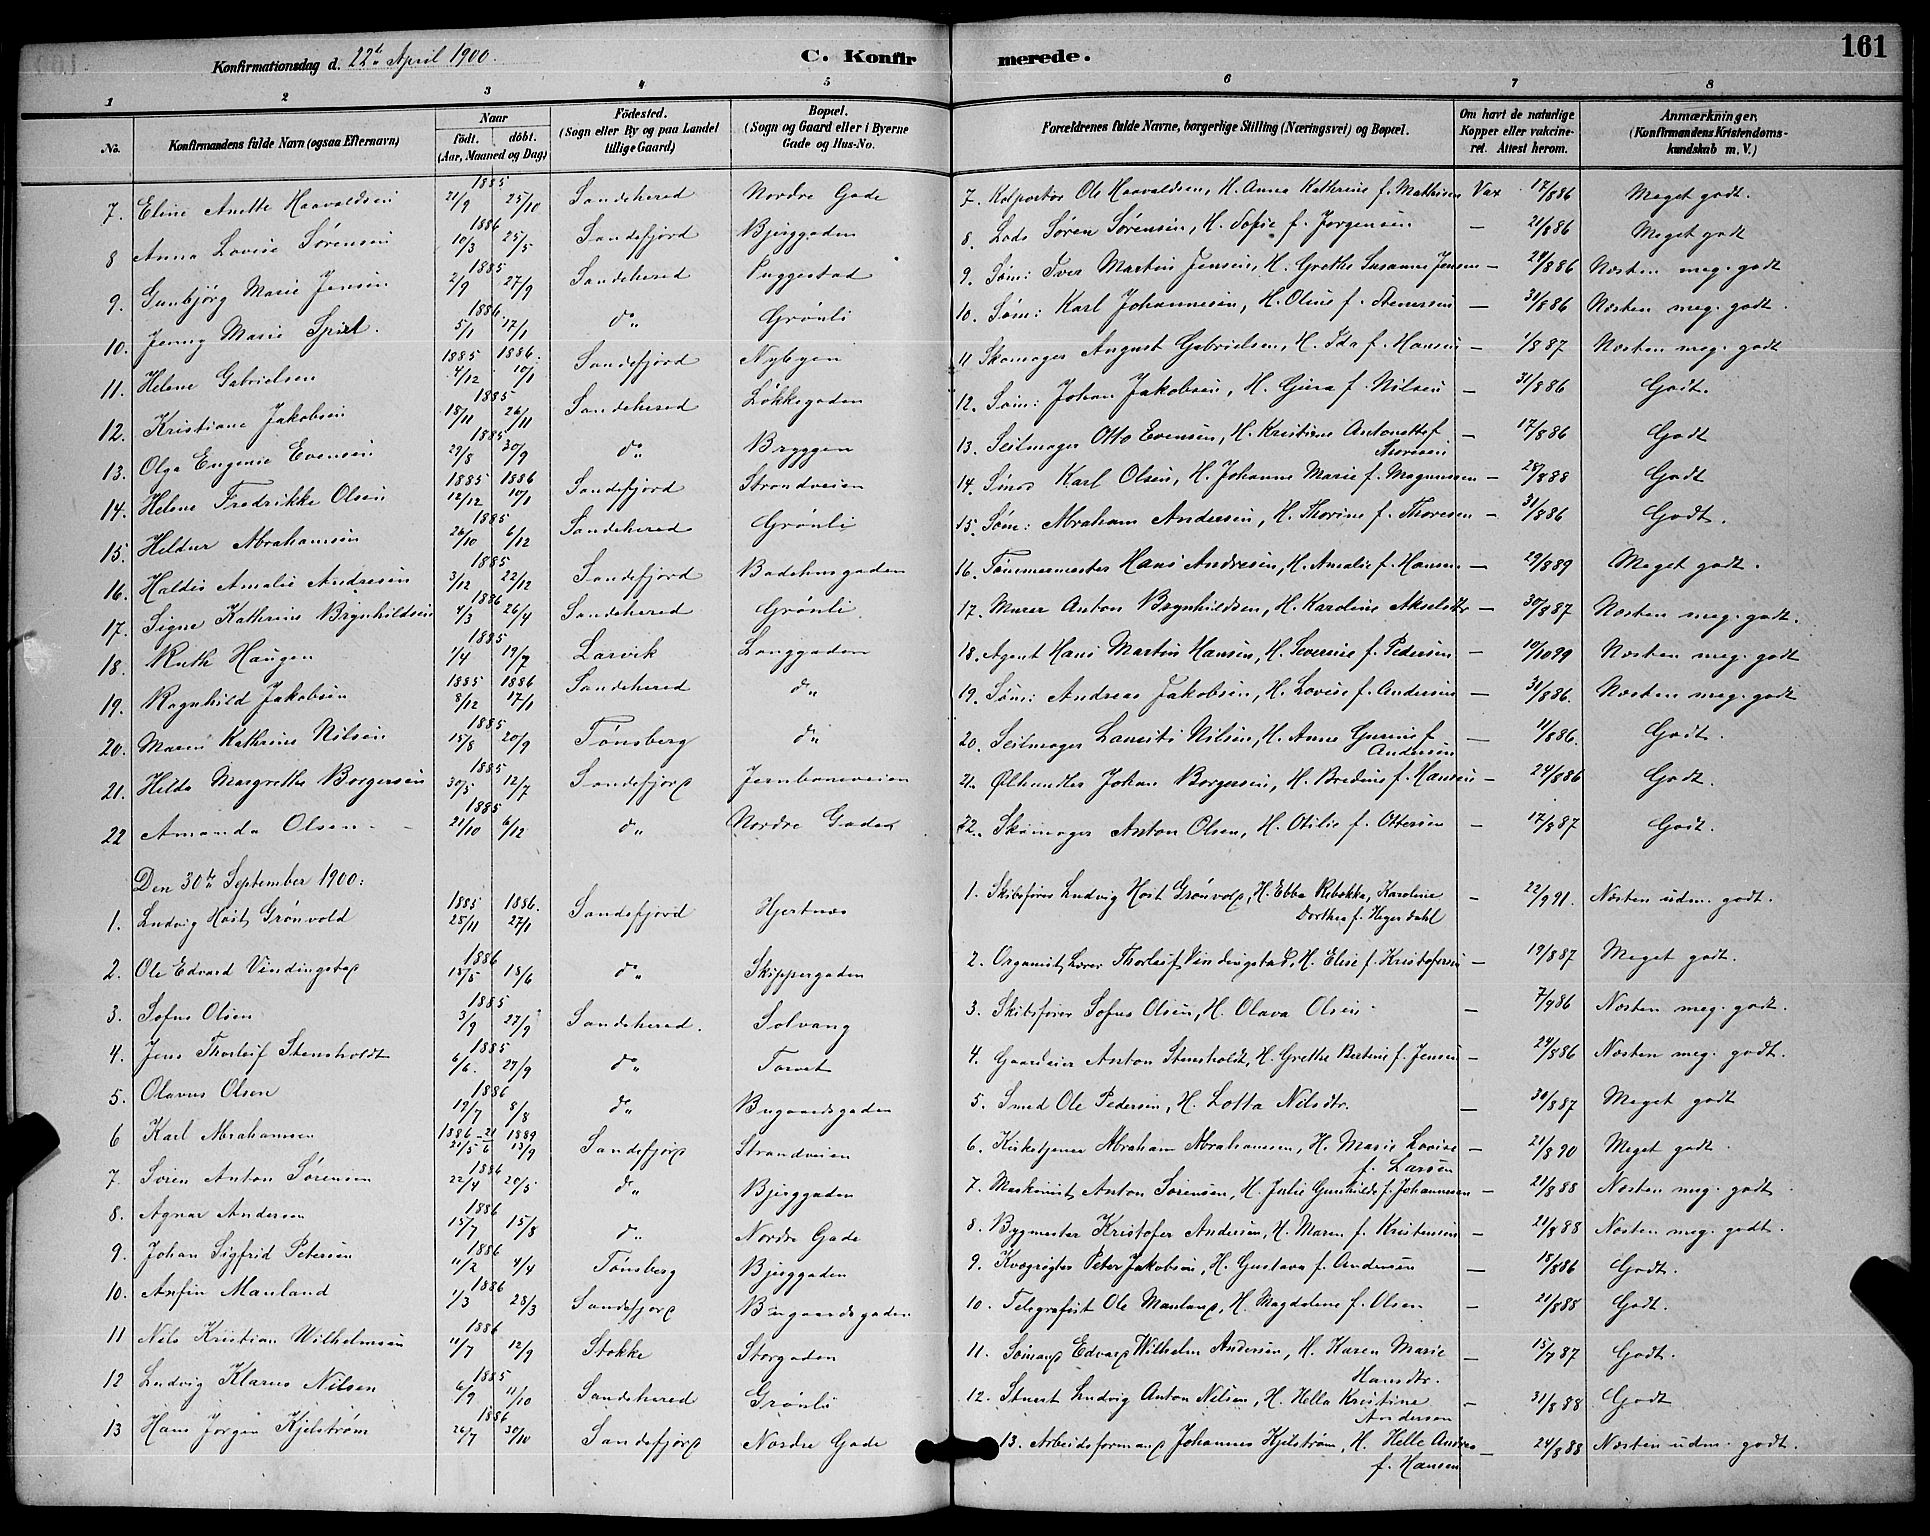 161
Konfirmationsdag d. 22de April 1900. C. Konfirmerede.
1 2 3 4 5 6 7 8
No. Konfirmandens fulde Navn (ogsaa Efternavn) Naar født. døbt. (Aar, Maaned og Dag) Fødested. (Sogn eller By og paa Landet tillige Gaard) Bopæl. (Sogn og Gaard eller i Byerne Gade og Hus-No. Forældrenes fulde Navne, borgerlige Stilling (Næringsvei) og Bopæl. Om havt de naturlige Kopper eller vakcineret. Attest herom. Anmærkninger. (Konfirmandens Kristendomskundskab m. V.)
7. Eline Anette Haavaldsen 1885 21/9 25/10 Sandehered Nordre Gade 7. Kolportør Ole Haavaldsen, H. Anna Kathrine f. Mathisen Vax 17/8 86 Meget godt.
8 Anna Lovise Sørensen 1886 10/3 25/5 Sandefjord Bjerggaden 8. Lods Søren Sørensen, H. Sofie f. Jørgensen — 21/8 86 Meget godt
9. Gunbjørg Marie Jensen 1885 2/9 27/9 Sandehered Puggestad 9. Søm: Iver Martin Jensen, H. Grethe Susanne Jensen — 24/8 86 Næsten meg. godt
10. Jenny Marie Spiel. 1886 5/1 17/1 do Grønli 10. Søm: Karl Johannesen, H. Oline f. Stenersen — 31/8 86 Næsten meg. godt.
11. Helene Gabrielsen 1885 4/12 1886. 10/1 Sandefjord Nybyen 11 Skomager August Gabrielsen, H. Ida f. Hansen — 1/8 87 Næsten meg. godt
12. Kristiane Jakobsen 1885 18/11 26/11 Sandehered Løkkegaden 12. Søm: Johan Jakobsen, H. Gura f. Nilsen — 31/8 86 Godt.
13. Olga Eugenie Evensen 1885 29/8 30/9 do Bryggen 13. Seilmager Otto Evensen, H. Kristine Antonette f. Thoresen — 17/8 86 Godt
14. Helene Fredrikke Olsen 1885 12/12 1886 10/1 Sandefjord Strandveien 14. Smed Karl Olsen, H. Johanne Marie f. Magnussen — 28/8 88 Godt
15. Hildur Abrahamsen 1885 26/10 6/12 Sandehered Grønli 15. Søm: Abraham Andersen, H. Thorine f. Thoresen — 31/8 86 Godt.
16. Haldis Amalie Andresen 1885 3/12 22/12 Sandefjord Badehusgaden 16. Tømmermester Hans Andresen, H. Amalie f. Hansen — 29/8 89 Meget godt.
17. Signe Kathrine Brynhildsen 1886 4/3 26/4 Sandehered Grønli 17. Murer Anton Brynhildsen, H. Karoline Akselsdtr — 30/8 87 Næsten meg. godt.
18. Ruth Haugen 1885 1/4 19/7 Larvik Langgaden 18. Agent Hans Martin Hansen, H. Severine f. Pedersen — 10/10 99 Næsten meg. godt
19. Ragnhild Jakobsen 1885 8/12 1886 17/1 Sandehered do 19. Søm: Andreas Jakobsen, H. Lovise f. Andersen — 31/8 86. Næsten meg. godt
20. Maren Kathrine Nilsen 1885 15/8 20/9 Tønsberg do 20. Seilmager Laurits Nilsen, H. Anne Gurine f. Andersen — 11/8 86. Godt.
21. Hilda Margrethe Borgersen 1885 30/5 12/7 Sandefjord Jernbaneveien 21. Ølhandler Johan Borgersen, H. Bredine f. Hansen — 24/8 86 Godt.
22 Amanda Olsen 1885 21/10 6/12 do Nordre Gade 22. Skomager Anton Olsen, H. Otilie f. Ottersen — 17/8 87 Godt.
Den 30te September 1900:
1. Ludvig Høst Grønvold 1885 25/11 1886. 27/1 Sandefjord Hjertnes 1. Skibsfører Ludvig Høst Grønvold, H. Ebba Rebekka, Karoline Dorthea f. Heyerdahl — 22/9 91. Næsten udm. godt.
2. Ole Edvard Vindingstad 1886 18/5 18/6 do Skippergaden 2. Organist, Lærer Thorleif Vindingstad, H. Elise f. Kristofersen — 19/8 87 Meget godt.
3. Sofus Olsen 1885 3/9 27/9 Sandehered. Solvang 3. Skibsfører Sofus Olsen, H. Olava Olsen — 7/9 86 Næsten meg. godt.
4. Jens Thorleif Stensholdt 1885 6/6. 27/9 do Torvet 4. Gaardeier Anton Stensholdt, H. Grethe Bertine f. Jensen — 24/8 86 Næsten meg. godt.
5. Olavus Olsen 1886 19/7 8/8 do Bugaardsgaden 5. Smed Ole Pedersen, H. Lotta Nilsdtr. — 30/8 87 Meget godt
6 Karl Abrahamsen 1886 21/5 21/6 1889 13/9 Sandefjord Strandveien 6. Kirketjener Abraham Abrahamsen, H. Marie Lovise f. Larsen — 21/8 90 Meget godt.
7. Søren Anton Sørensen 1886 22/4 20/5 do Bjerggaden 7. Maskinist Anton Sørensen, H. Julie Gunhilde f. Johannesen — 21/8 88 Næsten meg. godt.
8. Agnar Andersen 1886 15/7 15/8 do Nordre Gade 8. Bygmester Kristofer Andersen, H. Maren f. Kristensen — 21/8 88 Næsten meg. godt.
9. Johan Sigfrid Petersen 1886 11/2 4/4 Tønsberg Bjerggaden 9. Kvægrigter Peter Jakobsen, H. Gustava f. Andersen — 18/8 86 Godt.
10. Anfin Mauland 1886 1/3 28/3 Sandefjord Bugaardsgaden 10. Telegrafist Ole Mauland, H. Magdalene f. Olsen — 21/8 88 Godt.
11 Nils Kristian Wilhelmsen 1886 11/7 12/9 Stokke Storgaden 11. Sømand Edvard Wilhelm Andersen, H. Karen Marie Hansdtr. — 15/9 87 Godt.
12 Ludvig Klarus Nilsen 1885 6/9 11/10 Sandehered Grønli 12. Stuert Ludvig Anton Nilsen, H. Hella Kristine Andersen — 31/8 88 Godt
13 Hans Jørgen Kjelstrøm 1886 26/7 30/10 Sandefjord Nordre Gade 13. Arbeidsformand Johannes Kjelstrøm, H. Helle Andrea f. Hansen — 24/8 88 Næsten udm. godt.